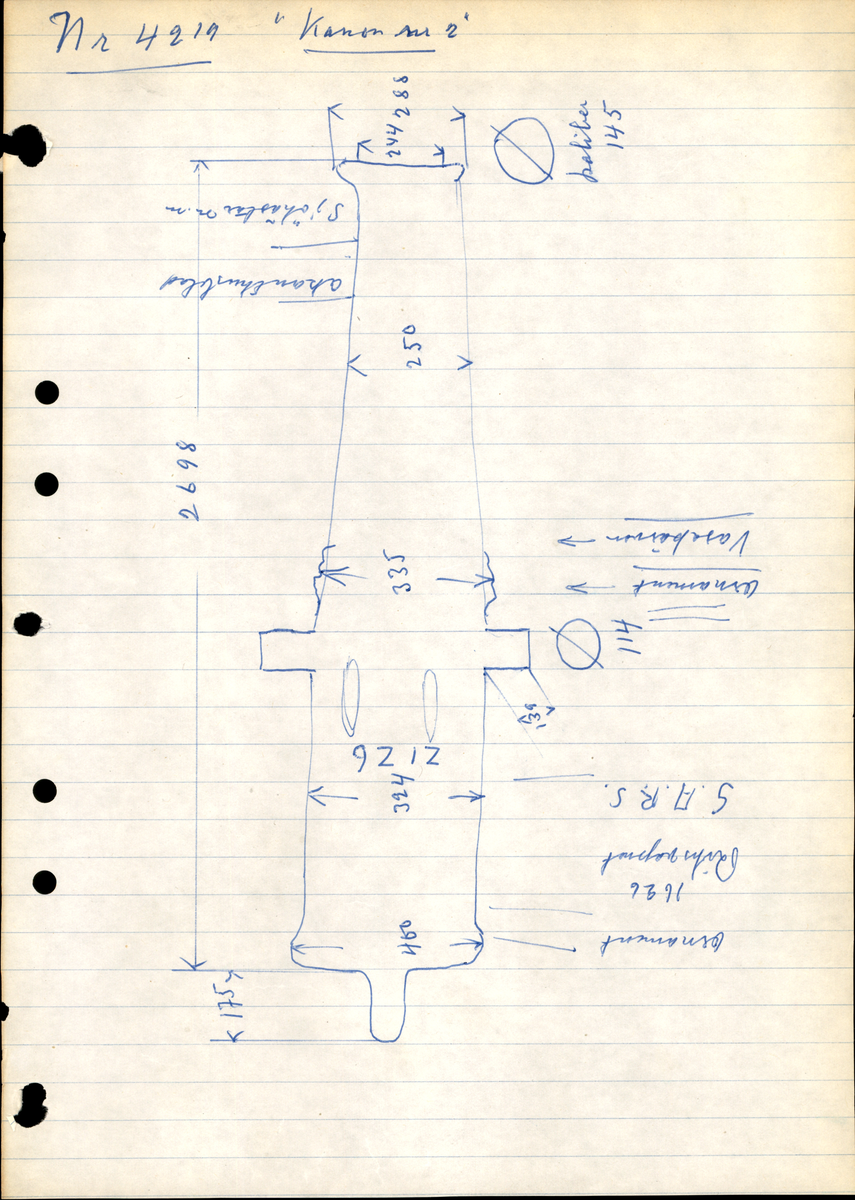 Nr 4219 "Kanon nr 2"
288
244
kaliber
145
Sjöhästar m.m
akanthusblad
250
2698
Vasekärven
ornament
335
114
139
Z1Z6
324
S.A.R.S.
Riksvapnet
1626
ornament
460
175